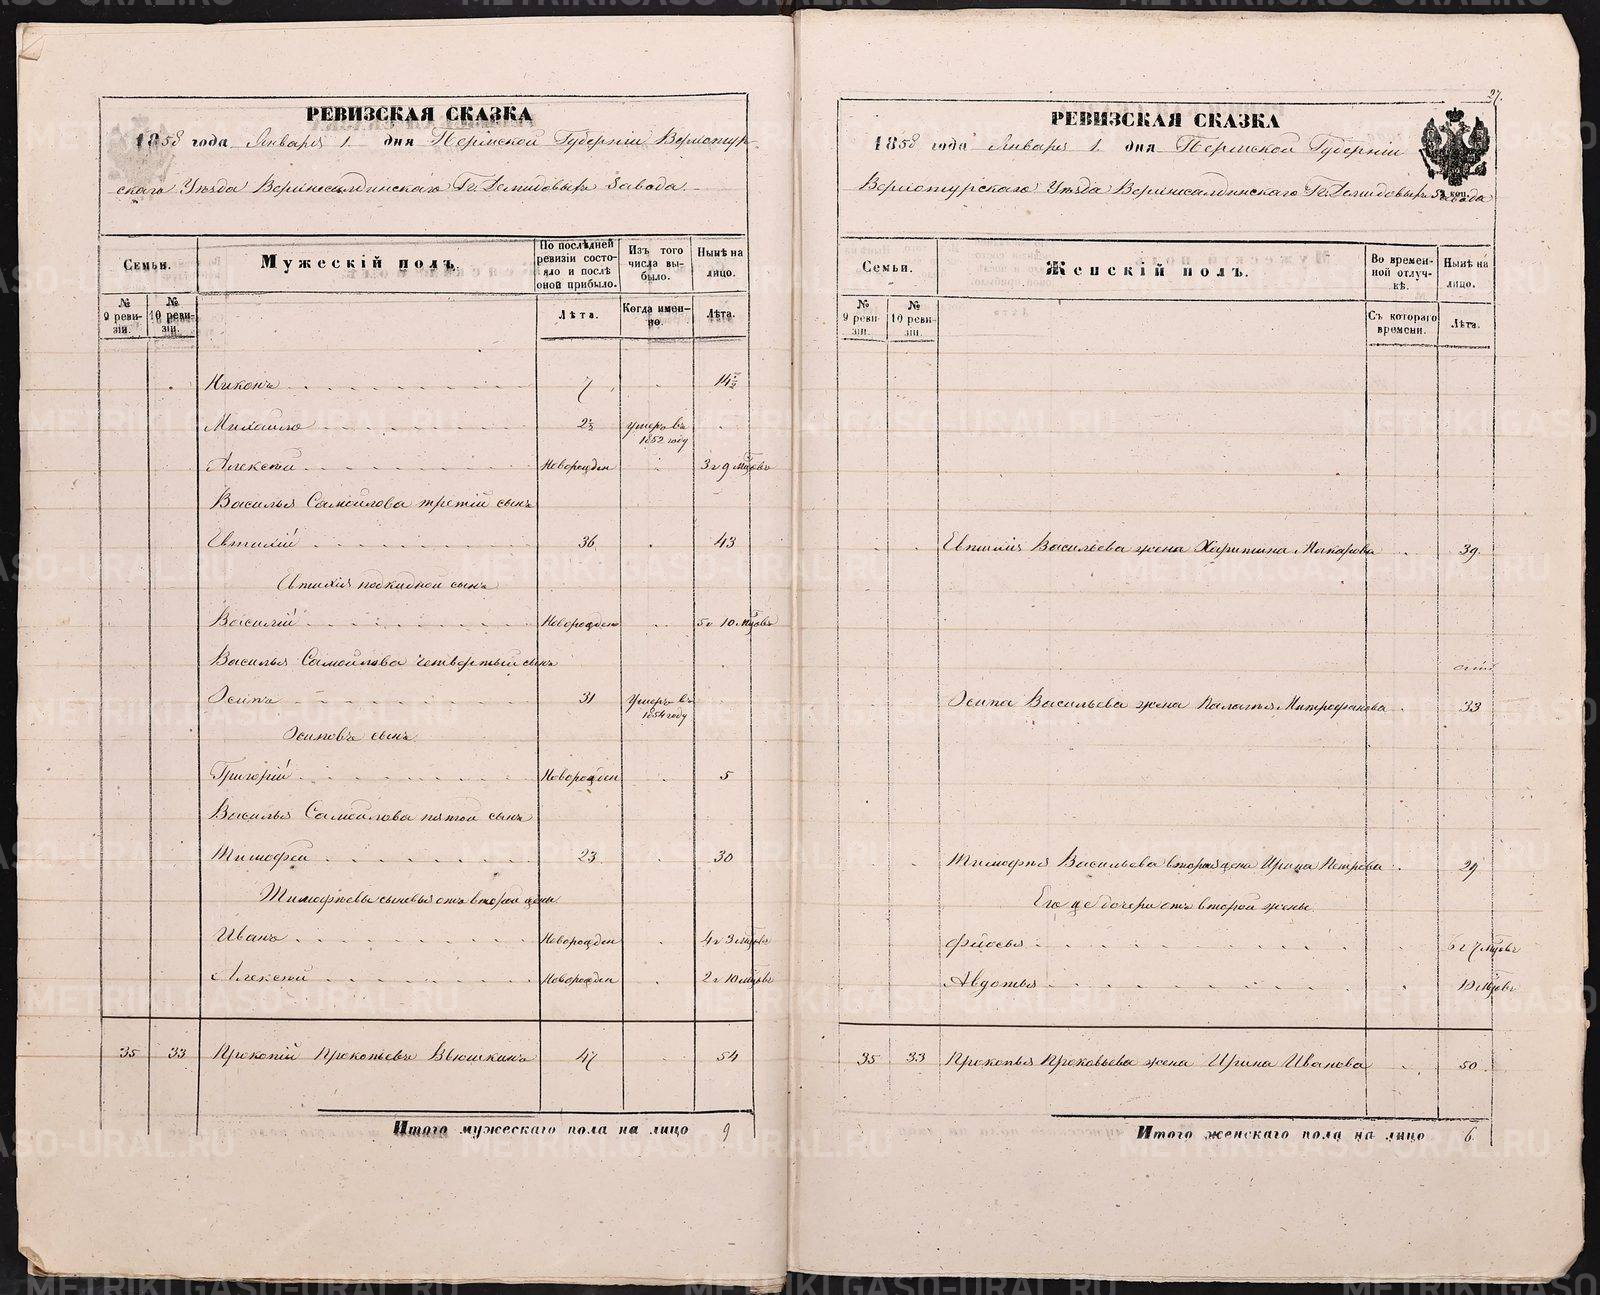 РЕВИЗСКАЯ СКАЗКА
1858 года Января 1 дня Пермской Губерніи Верхотур-
скаго Уѣзда Верхнесалдинскаго Гг. Демидовыхъ Завода
Семьи.
Мужескій полъ.
По послѣдней ревизіи состояло и послѣ оной прибыло.
Изъ того числа выбыло.
Нынѣ на лицо.
№ 9 ревизіи.
№ 10 ревизіи.
Лѣта.
Когда именно.
Лѣта.
Никонъ 7 14½
Михайло 2½ умеръ въ 1852 году
Алексѣй Новорожден 3 г 9 мцовъ
Василья Самойлова третій сынъ
Евтихій 36 43
Евтихія подкидной сынъ
Василій Новорожден 5 г 10 мцовъ
Василья Самойлова четвертый сынъ
Осипъ 31 умеръ въ 1854 году
Осиповъ сынъ
Григорій Новорожден 5
Василья Самойлова пятой сынъ
Тимофей 23 30
Тимофѣевы сыновья отъ второй жены
Иванъ Новорожден 4 г 3 мцовъ
Алексѣй Новорожден 2 г 10 мцовъ
35 33 Прокопій Прокопьевъ Вьюшкинъ 47 54
Итого мужескаго пола на лицо 9
27.
РЕВИЗСКАЯ СКАЗКА
1858 года Января 1 дня Пермской Губерніи
Верхотурскаго Уѣзда Верхнесалдинскаго Гг. Демидовыхъ Завода
Семьи.
Женскій полъ.
Во временной отлучкѣ.
Нынѣ на лицо.
№ 9 ревизіи.
№ 10 ревизіи.
Съ котораго времени.
Лѣта.
Евтихія Васильева жена Харитина Макарова 39
Осипа Васильева жена Палагья Митрофанова 33
Тимофья Васильева вторая жена Ирина Петрова 29
Его же дочери отъ второй жены
Федосья 6 г 7 мцовъ
Авдотья 10 мцовъ
35 33 Прокопья Прокопьева жена Ирина Иванова 50
Итого женскаго пола на лицо 6
METRIKI.GASO-URAL.RU